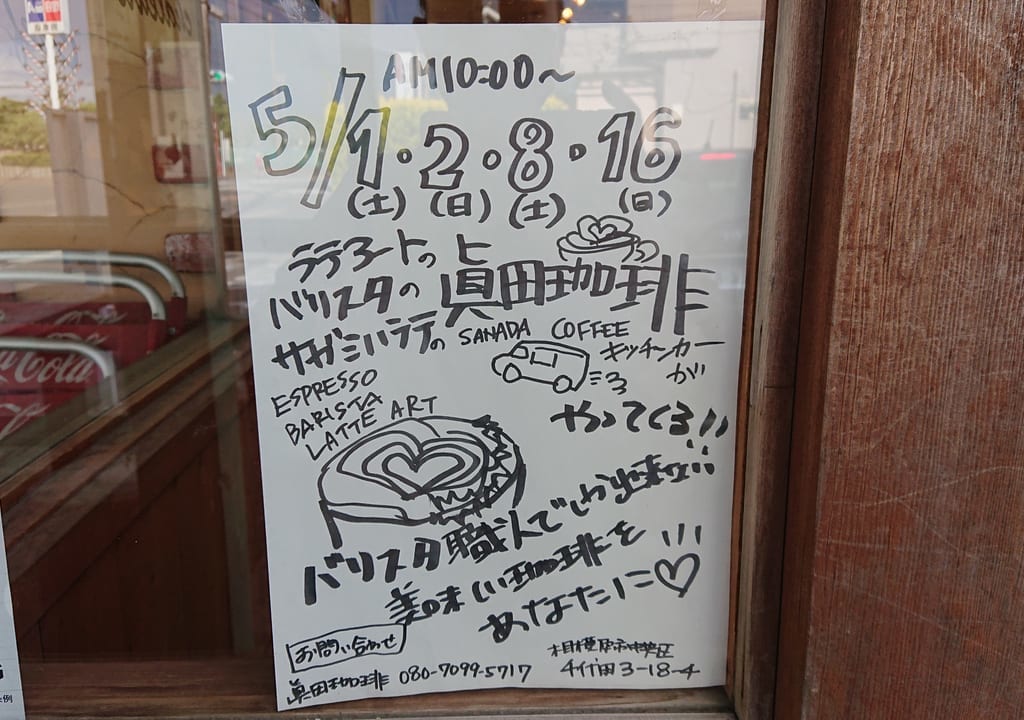 AM10:00〜
5/1・2・8・16
(土)(日)(土)(日)
ラテアートの
バリスタの眞田珈琲
サガミハラテの SANADA COFFEE
キッチンカー
が
ESPRESSO
BARISTA
LATTE ART
やってくる!!
バリスタ職人でしか出来ない
美味しい珈琲を
あなたに♡
お問い合わせ
眞田珈琲 080-7099-5717
相模原市中央区
Coca-Cola